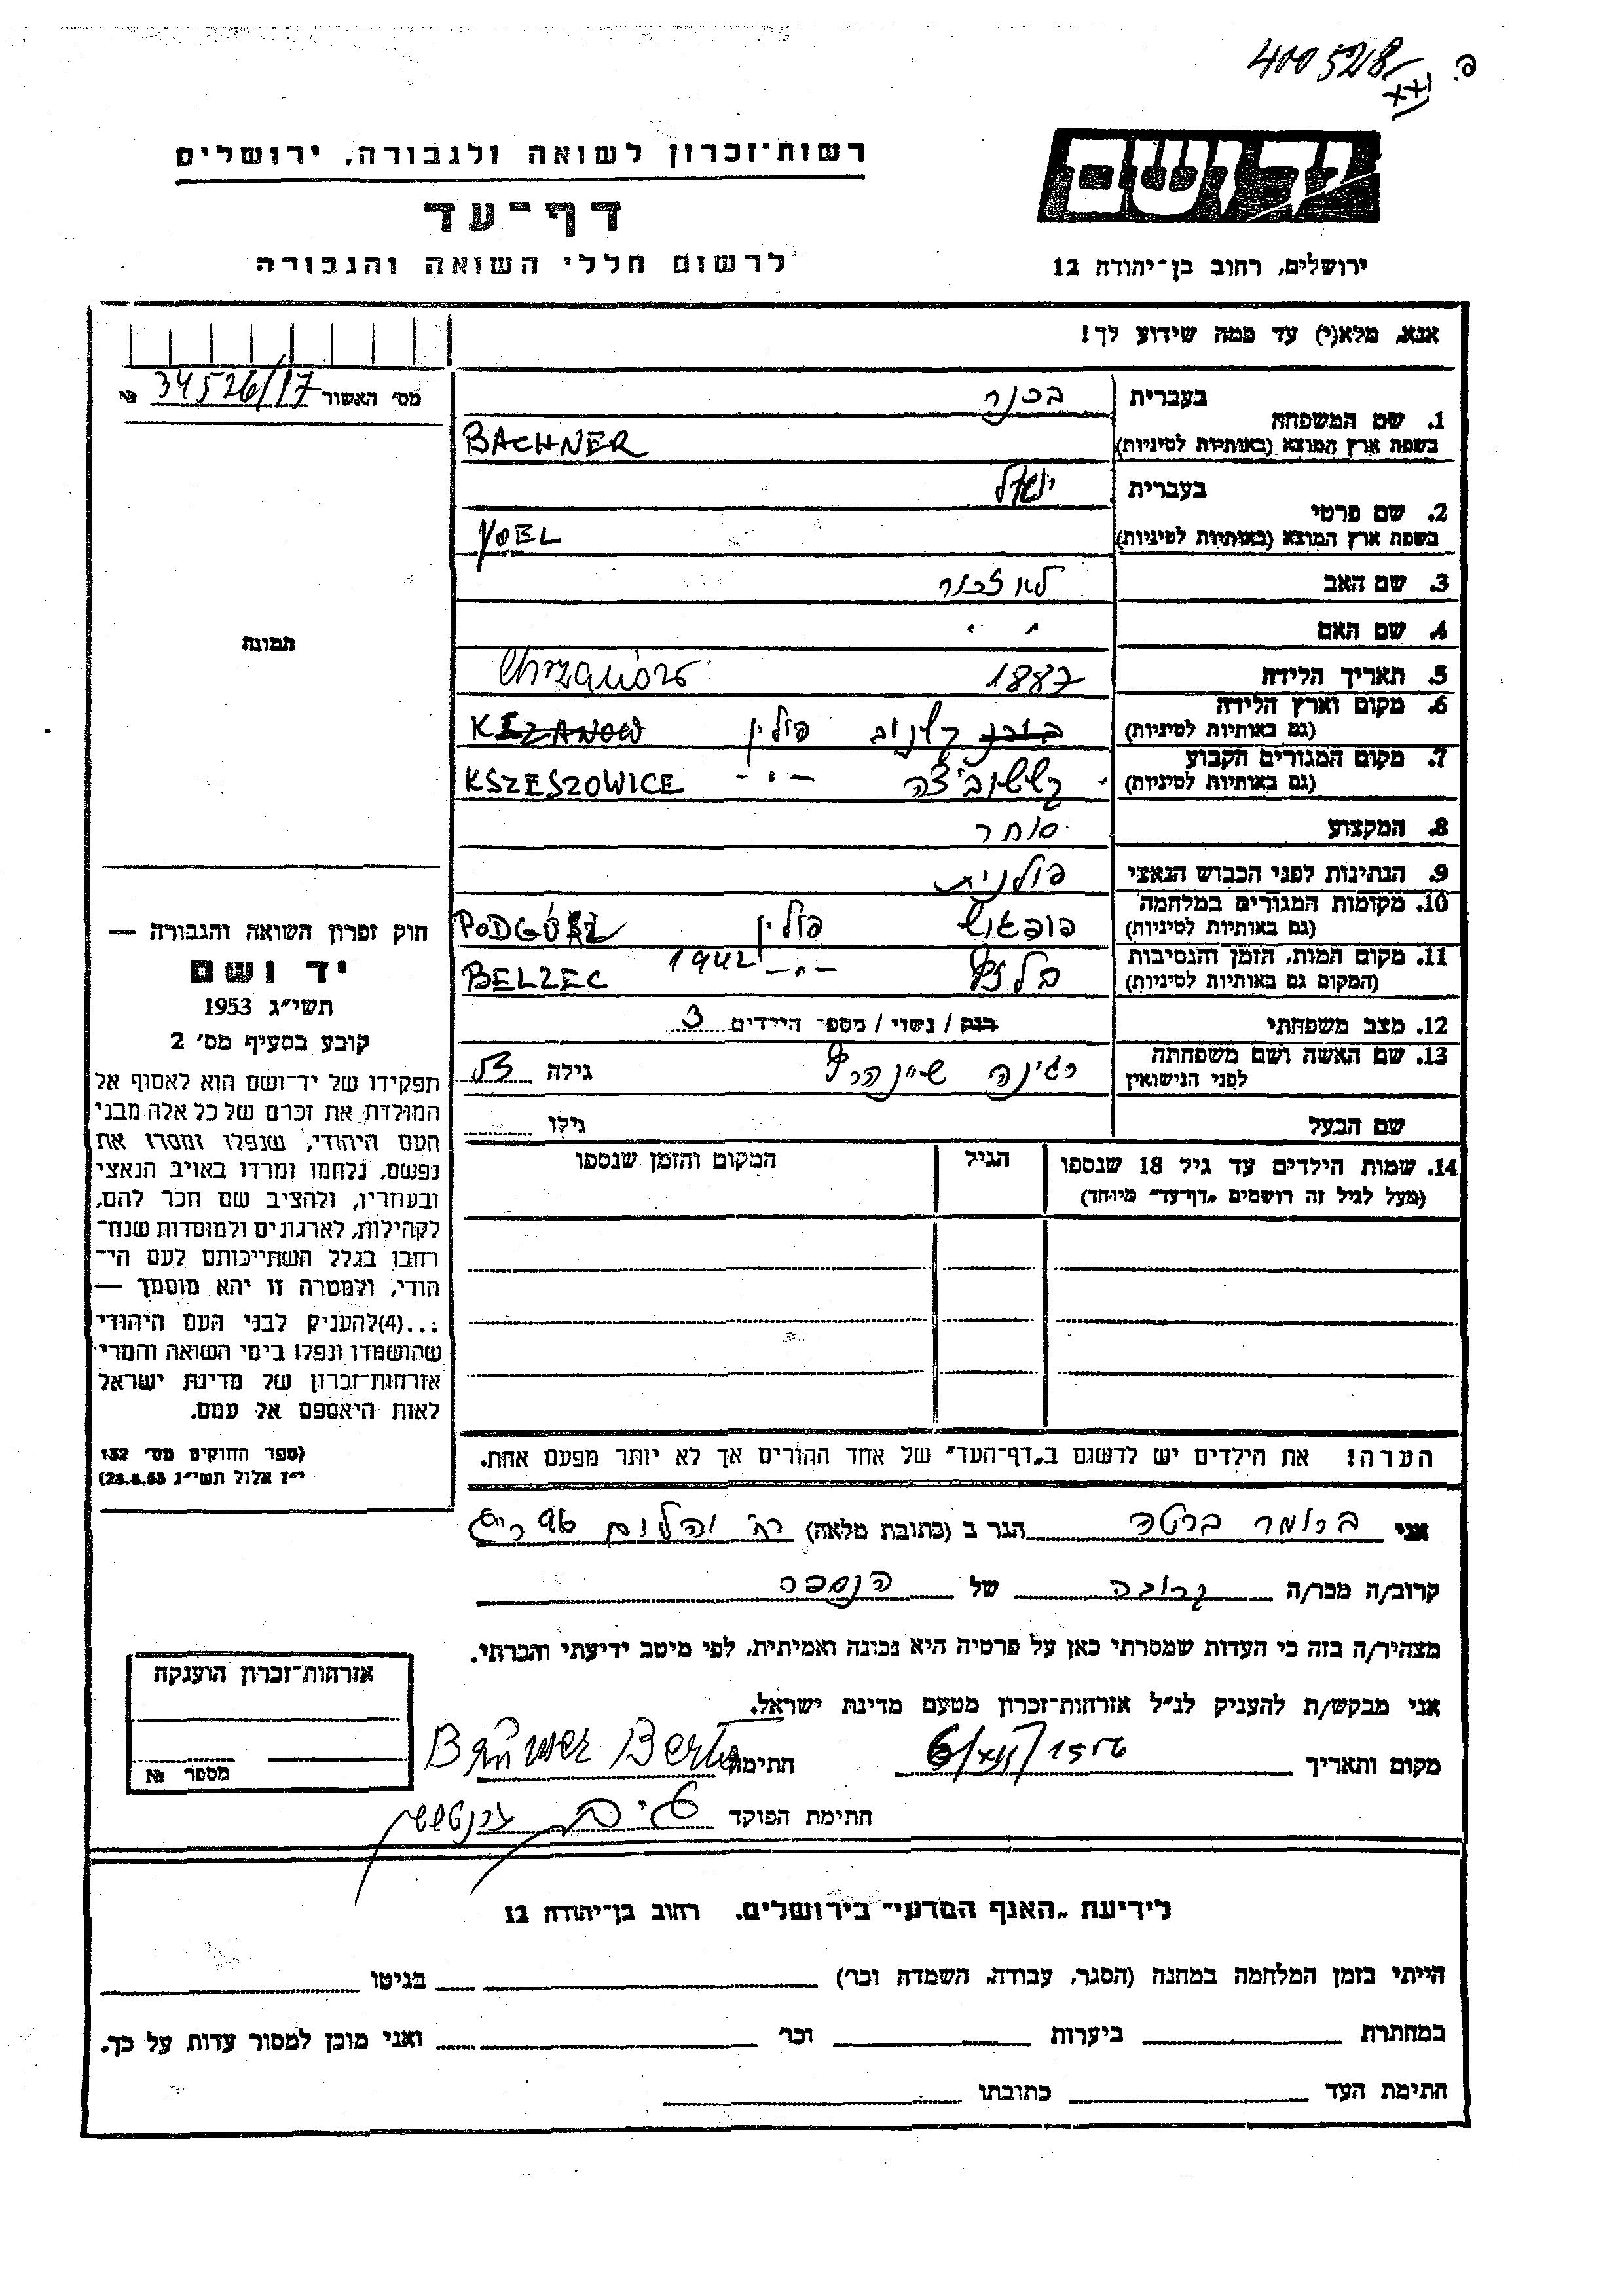 400528
יד ושם
רשות־זכרון לשואה ולגבורה, ירושלים
דף־עד
ירושלים, רחוב בן־יהודה 12
לרשום חללי השואה והגבורה
אנא, מלא(י) עד כמה שידוע לך!
מס׳ האשור 34526/17 №
1. שם המשפחה
בעברית בכנר
בשפת ארץ המוצא (באותיות לטיניות) BACHNER
2. שם פרטי
בעברית
בשפת ארץ המוצא (באותיות לטיניות) YOEL
3. שם האב לא זכור
4. שם האם " "
5. תאריך הלידה 1887
Chrzanów
6. מקום וארץ הלידה
(גם באותיות לטיניות) קשנוב פולין KEZANOW
7. מקום המגורים הקבוע
(גם באותיות לטיניות) קששוביצה -"- KSZESZOWICE
8. המקצוע סוחר
9. הנתינות לפני הכבוש הנאצי פולנית
10. מקומות המגורים במלחמה
(גם באותיות לטיניות) פולין PODGÓRZ
11. מקום המות, הזמן והנסיבות
(המקום גם באותיות לטיניות) בלזץ -"- 1942 BELZEC
12. מצב משפחתי רווק / נשוי / מספר הילדים 3
13. שם האשה ושם משפחתה
לפני הנישואין רגינה גילה
שם הבעל גילו
14. שמות הילדים עד גיל 18 שנספו
(מעל לגיל זה רושמים „דף־עד״ מיוחד)
הגיל
המקום והזמן שנספו
הערה! את הילדים יש לרשום ב„דף־העד״ של אחד ההורים אך לא יותר מפעם אחת.
תמונה
חוק זכרון השואה והגבורה —
יד ושם
תשי״ג 1953
קובע בסעיף מס׳ 2
תפקידו של יד־ושם הוא לאסוף אל
המולדת את זכרם של כל אלה מבני
העם היהודי, שנפלו ומסרו את
נפשם, נלחמו ומרדו באויב הנאצי
ובעוזריו, ולהציב שם וזכר להם,
לקהילות, לארגונים ולמוסדות שנח־
רבו בגלל השתייכותם לעם הי־
הודי, ולמטרה זו יהא מוסמך —
...(4)להעניק לבני העם היהודי
שהושמדו ונפלו בימי השואה והמרי
אזרחות־זכרון של מדינת ישראל
לאות היאספם אל עמם.
(ספר החוקים מס׳ 132
י״ז אלול תשי״ג 28.8.53)
אני ברומר ברטה הגר ב (כתובת מלאה)
קרוב/ה מכר/ה קרובה של הנספה
מצהיר/ה בזה כי העדות שמסרתי כאן על פרטיה היא נכונה ואמיתית, לפי מיטב ידיעתי והכרתי.
אני מבקש/ת להעניק לנ״ל אזרחות־זכרון מטעם מדינת ישראל.
מקום ותאריך חתימה Berta
חתימת הפוקד
אזרחות־זכרון הוענקה
מספר №
לידיעת „האגף המדעי״ בירושלים, רחוב בן־יהודה 12
הייתי בזמן המלחמה במחנה (הסגר, עבודה, השמדה וכר׳) בגיטו
במחתרת ביערות וכר׳ ואני מוכן למסור עדות על כך.
חתימת העד כתובתו